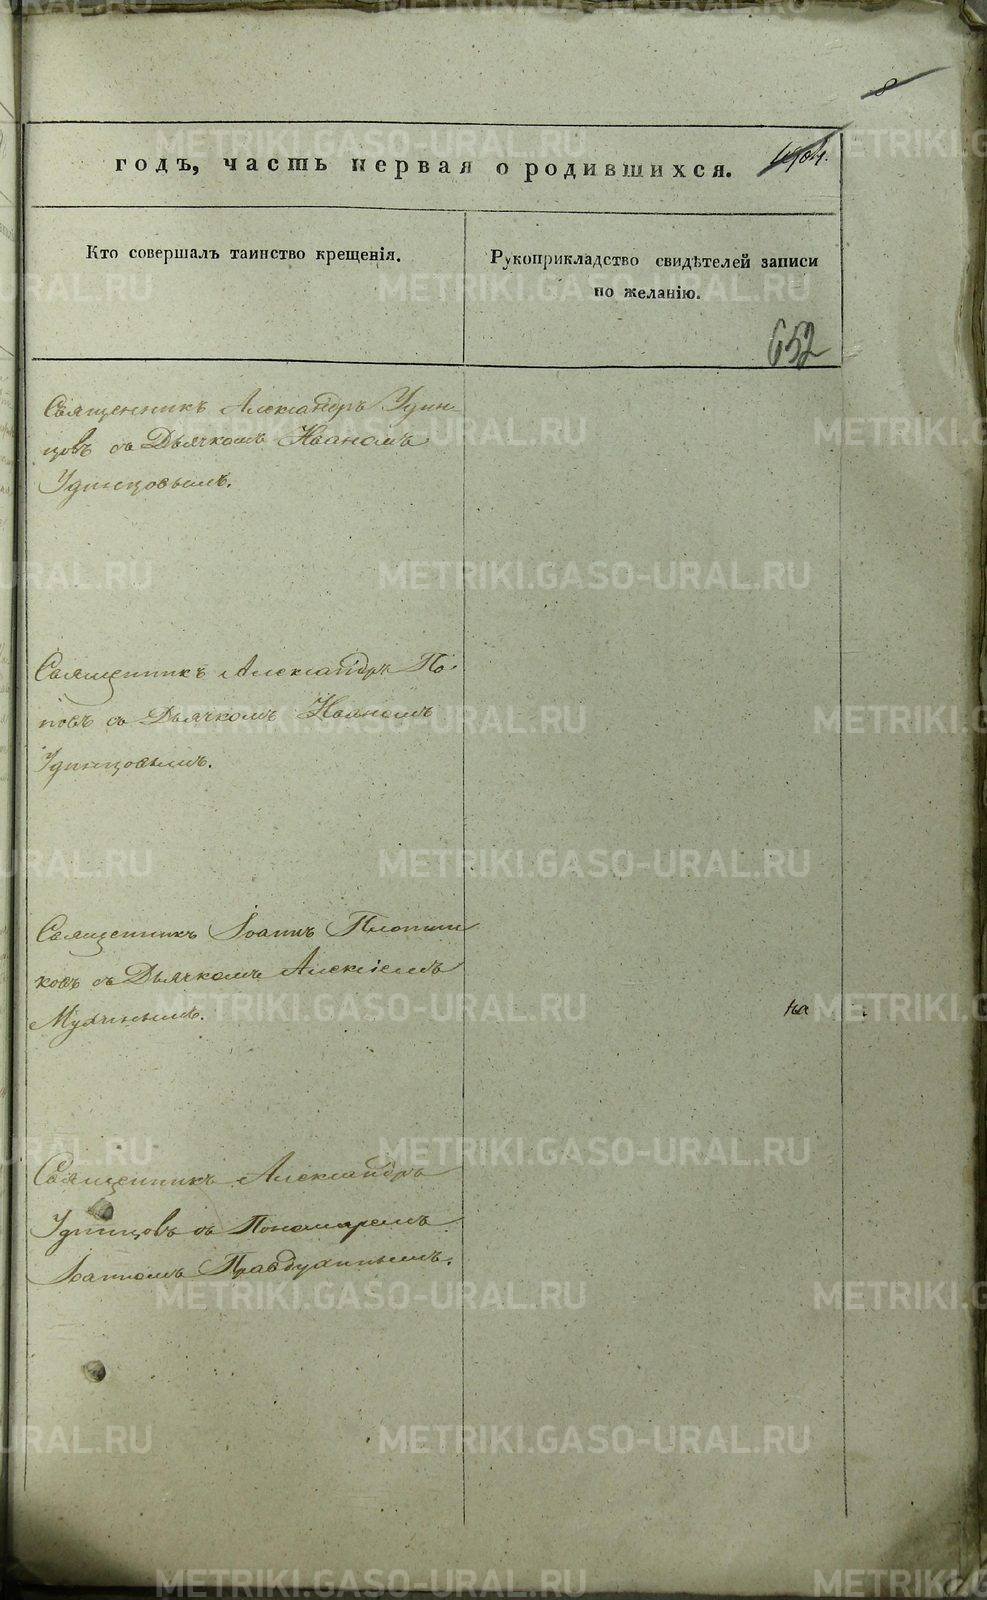 8
годъ, часть первая о родившихся.
Кто совершалъ таинство крещенія.
Рукоприкладство свидѣтелей записи
по желанію.
652
Священникъ Александръ Удин-
цовъ съ Дьячкомъ Иваномъ
Удинцовымъ.
Священникъ Александръ По-
повъ съ Дьячкомъ Иваномъ
Удинцовымъ.
Священникъ Іоаннъ Плотни
ковъ съ Дьячкомъ Алексіемъ
на
Священникъ Александръ
Удинцовъ съ Пономаремъ
Іоанномъ Правдухинымъ.
METRIKI.GASO-URAL.RU